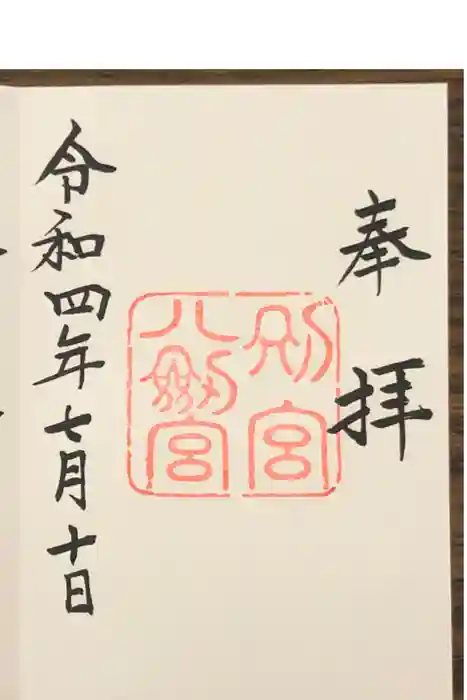 奉拝
別宮
八剱宮
令和四年七月十日